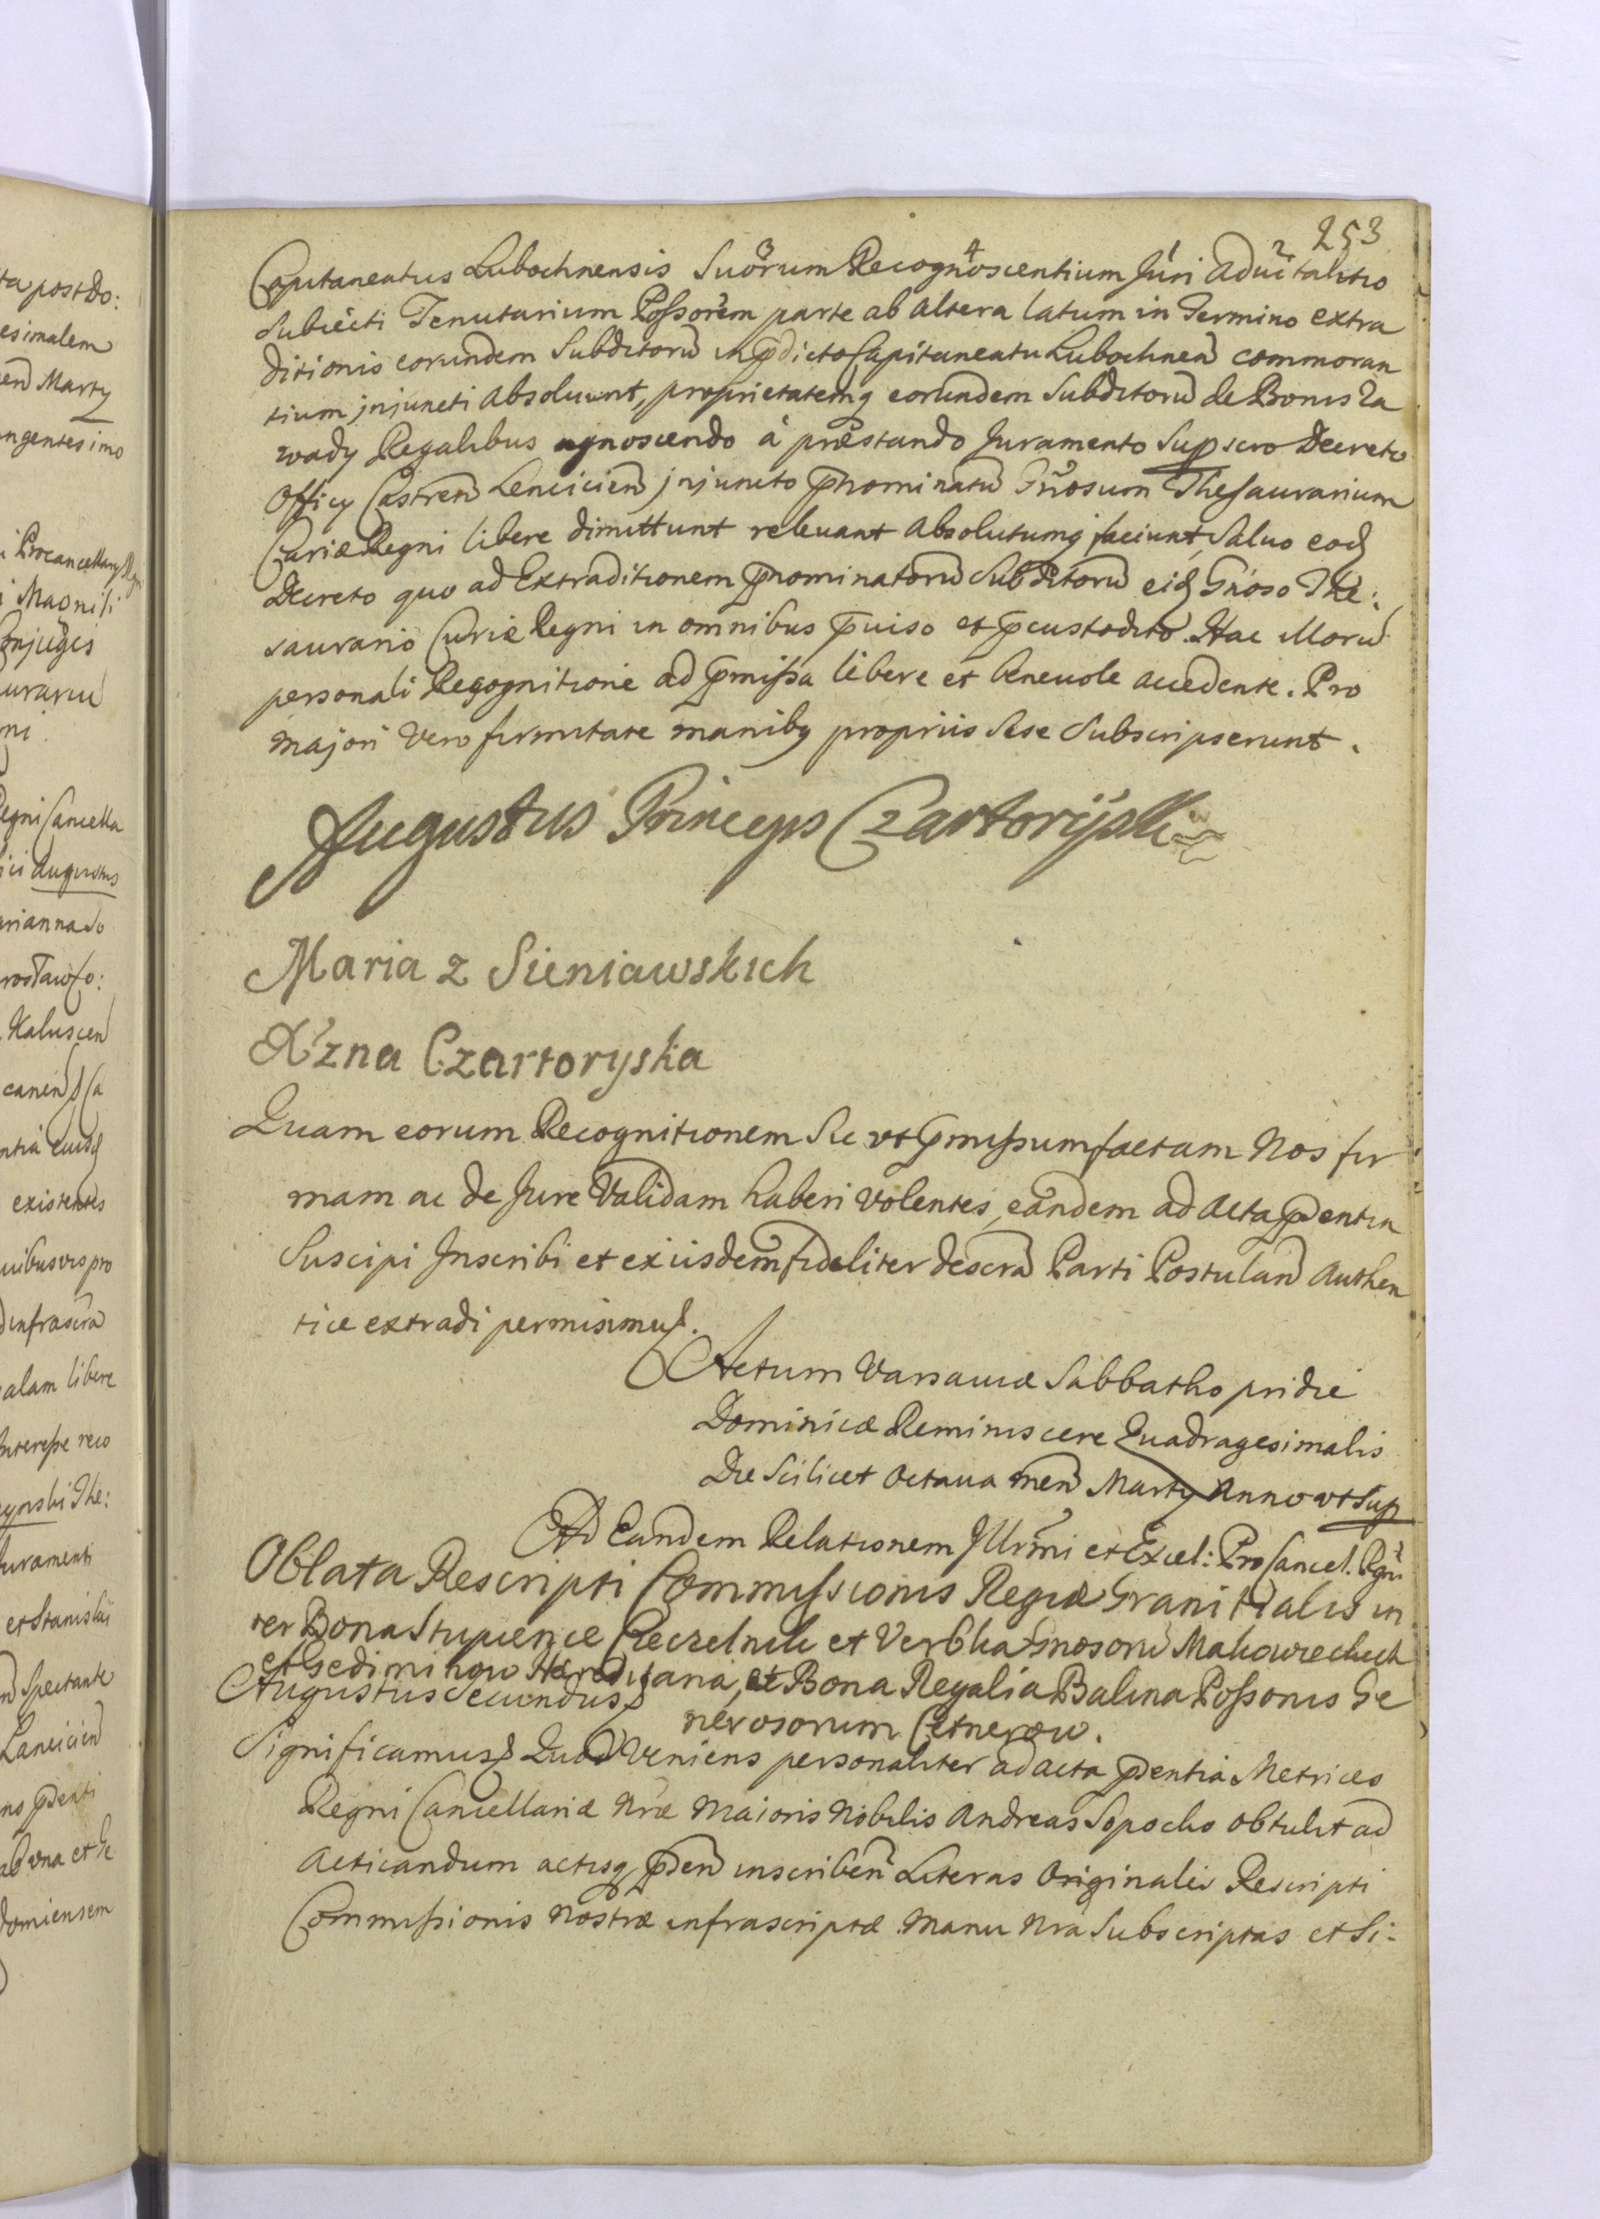 253
Capitaneatus Lubochnensis Suorum Recognoscentium Juri aduitalitio
Subiecti Tenutarium Possorem parte ab altera latum in Termino extra
ditionis eorundem Subditorũ in p̃dicto Capitaneatu Lubochneñ commoran
tium injuncti absoluunt, proprietatemq eorundem Subditorũ de Bonis Za
wady Regalibus agnoscendo à præstando Juramento Supscro Decreto
Officy Castreñ Lencicieñ injuncto p̃nominatũ Gñosum Thesaurarium
Curiæ Regni libere dimittunt releuant absolutumq faciunt, Saluo eod
Decreto quo ad Extraditionem p̃nominatorũ Subditorũ eid Gñoso The:
saurario Curiæ Regni in omnibus p̃uiso et p̃custodito. Hac Morũ
personali Recognitione ad p̃missa libere et beneuole accedente. Pro
majori vero firmitate manibq propriis sese Subscripserunt.
Augustus Princeps Czartoryski
Maria z Sieniawskich
Xżna Czartoryska
Quam eorum Recognitionem Sic vt p̃missum factam Nos fir
mam ac de Jure Validam haberi volentes, eandem ad Acta p̃sentia
Suscipi Inscribi et eiusdem fideliter descrã Parti Postulañ Authen
tice extradi permisimus.
Actum Varsauiæ Sabbatho pridie
Dominicæ Reminiscere Quadragesimalis
Die Scilicet Octaua meñ Marty Anno vt Sup
Ad Eandem Relationem Illrmi et Excel: ProCancel. Rgni
Oblata Rescripti Commissionis Regiæ Granitialis in
ter Bona Stupience Czeczelniki et Verbka Gnosorũ Makowieckich
et Gediminow Hæreditaria, et Bona Regalia Balina Possonis Ge
nerosorum Cetnerow.
Augustus Secundus
Significamus Quod Veniens personaliter ad acta p̃sentia Metrices
Regni Cancellariæ Nræ Maioris Nobilis Andreas Sopocko obtulit ad
Acticandum actisq p̃señ inscribeñ Literas Originales Rescripti
Commissionis Nostræ infrascriptæ Manu Nra Subscriptas et Si-